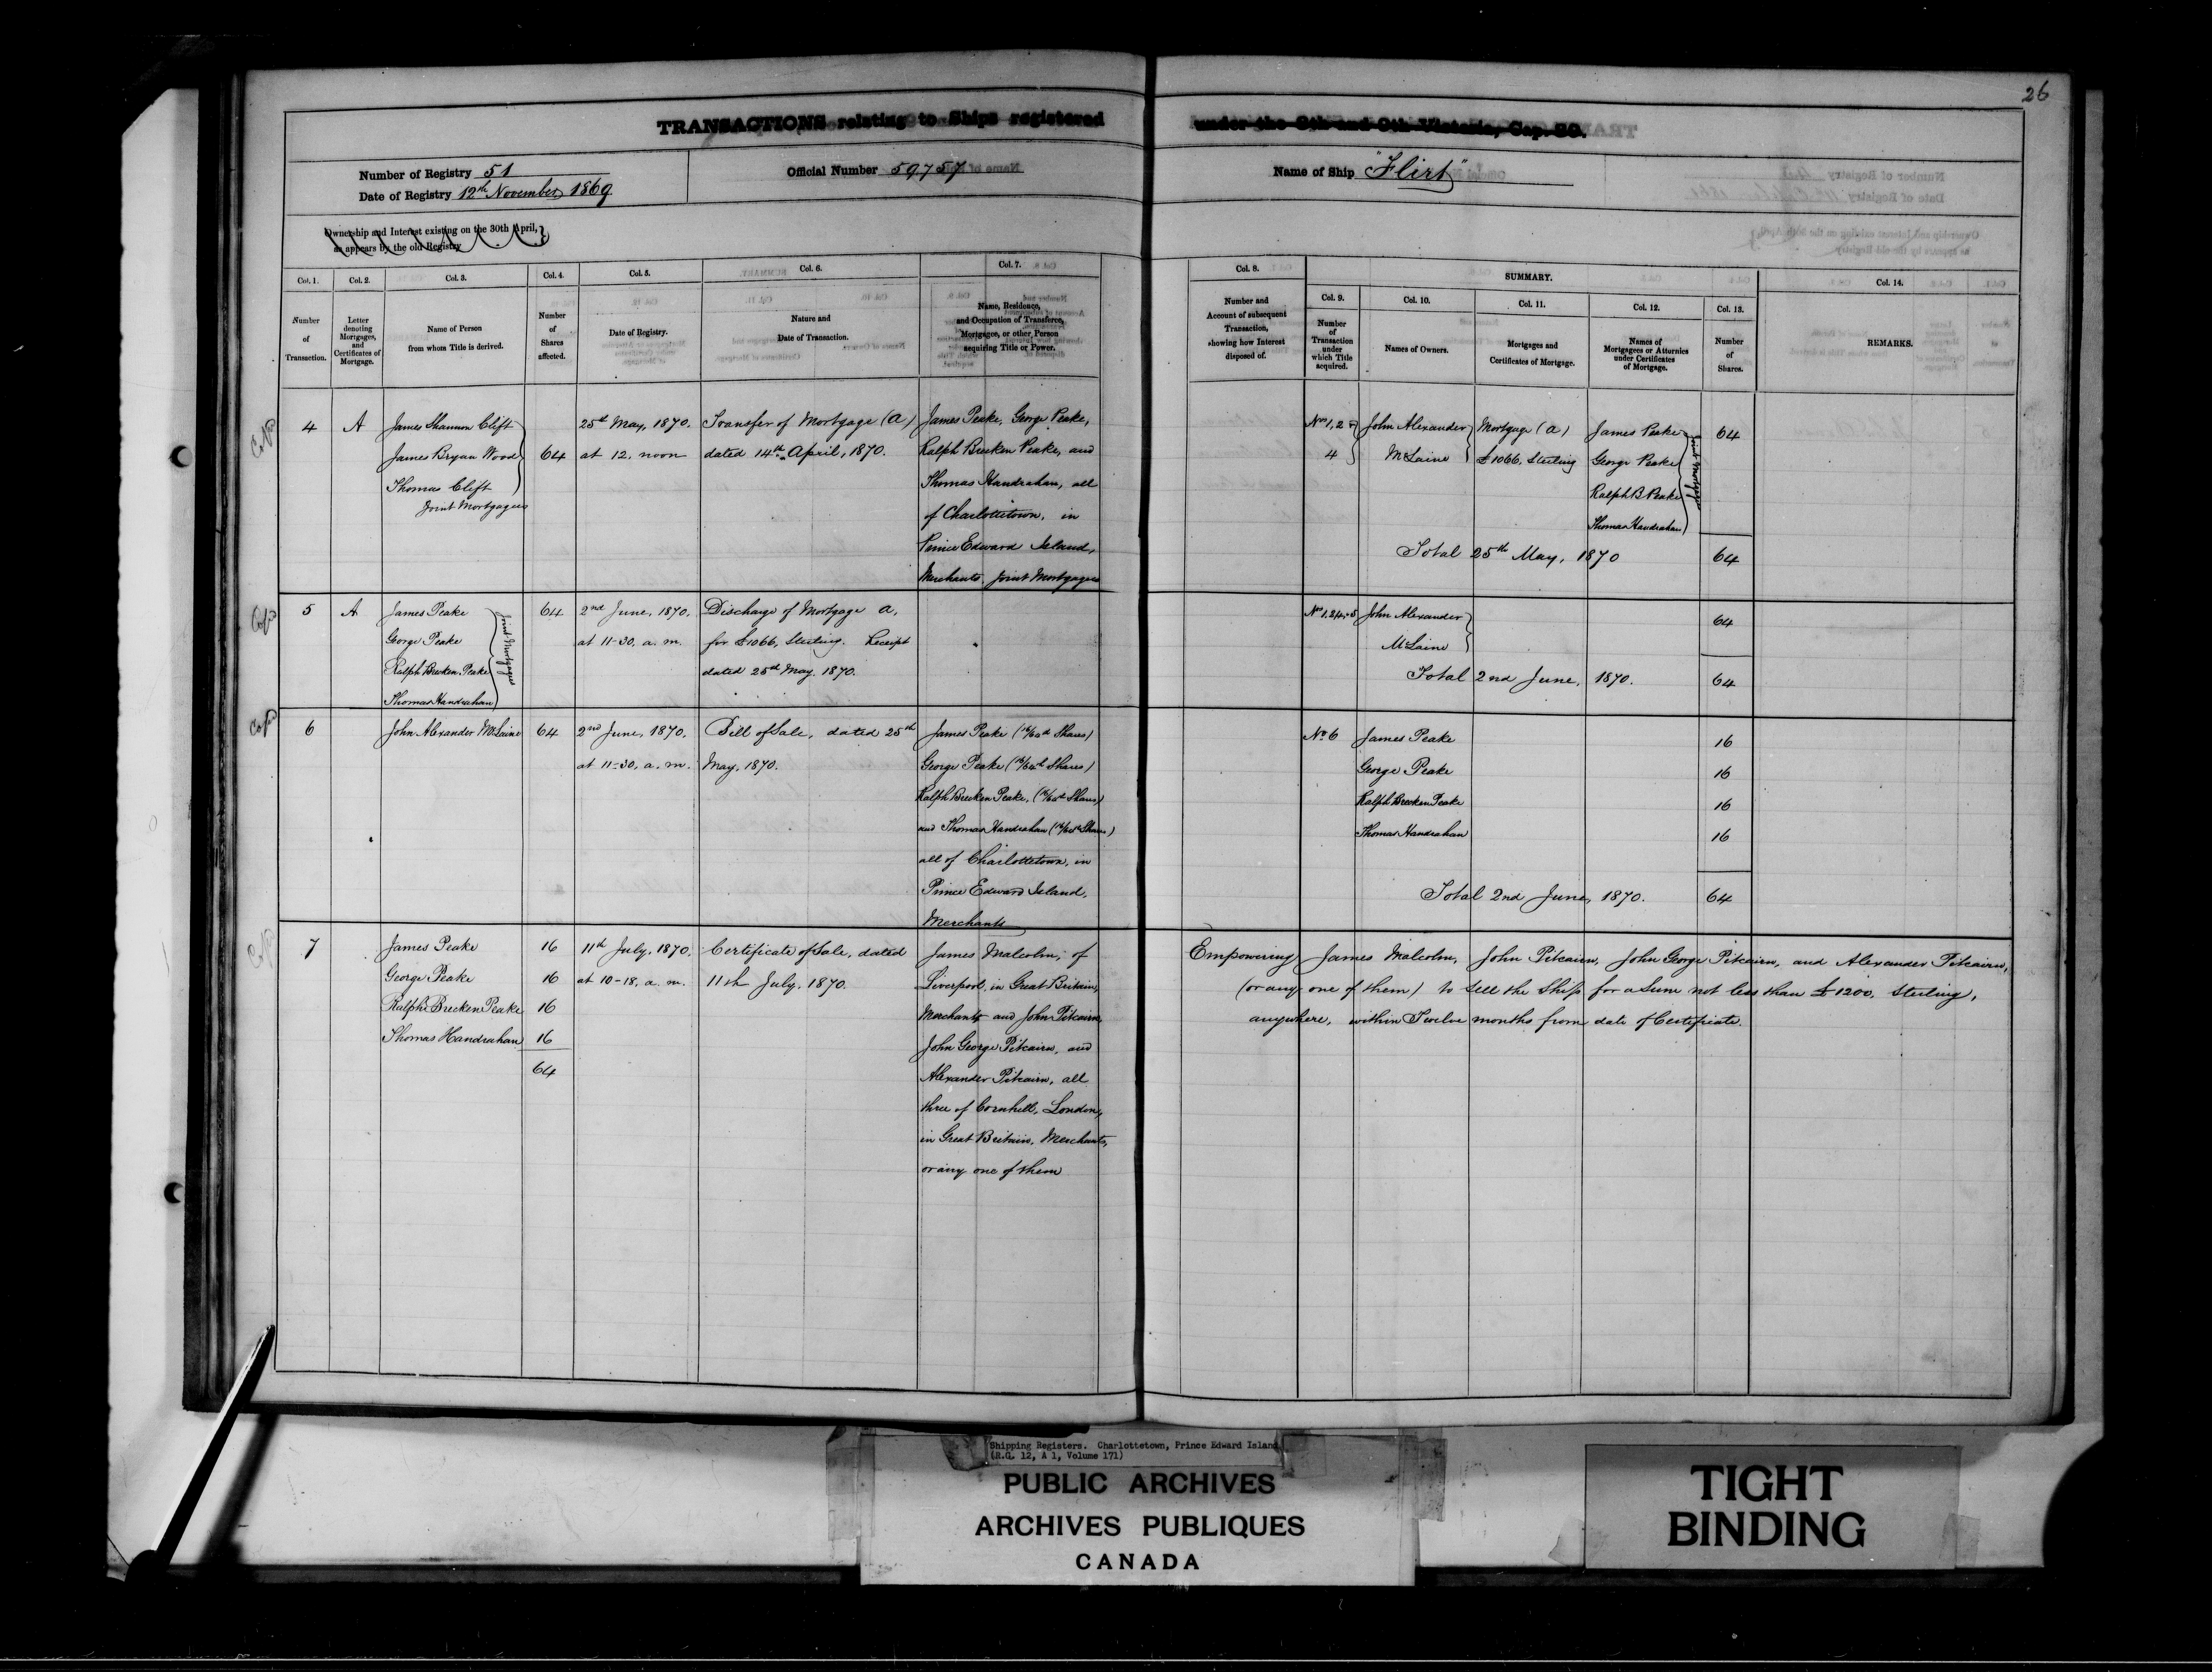 26
TRANSACTIONS relating to Ships registered under the 8th and 9th Victoria, Cap. 89.
Number of Registry 51
Date of Registry 12th November 1869
Official Number 59757
Name of Ship "Flirt"
Ownership and Interest existing on the 30th April,
as appears by the old Registry
Col. 1.
Number
of
Transaction.
Col. 2.
Letter
denoting
Mortgages,
and
Certificates of
Mortgage.
Col. 3.
Name of Person
from whom Title is derived.
Col. 4.
Number
of
Shares
affected.
Col. 5.
Date of Registry.
Col. 6.
Nature and
Date of Transaction.
Col. 7.
Name, Residence,
and Occupation of Transferee,
Mortgagee, or other Person
acquiring Title or Power.
Col. 8.
Number and
Account of subsequent
Transaction,
showing how Interest
disposed of.
SUMMARY.
Col. 9.
Number
of
Transaction
under
which Title
acquired.
Col. 10.
Names of Owners.
Col. 11.
Mortgages and
Certificates of Mortgage.
Col. 12.
Names of
Mortgagees or Attornies
under Certificates
of Mortgage.
Col. 13.
Number
of
Shares.
Col. 14.
REMARKS.
4
A
James Shannon Clift
James Bryan Wood
Thomas Clift
Joint Mortgagees
64
25th May, 1870.
at 12, noon
Transfer of Mortgage (A)
dated 14th April, 1870.
James Peake, George Peake,
Ralph Brecken Peake, and
Thomas Handrahan, all
of Charlottetown, in
Prince Edward Island,
Merchants, Joint Mortgagees
Nos 1, 2 &
4
John Alexander
McLaine
Mortgage (A)
£1066, Sterling
James Peake
George Peake
Ralph B Peake
Thomas Handrahan
Joint Mortgagees
64
Total 25th May, 1870
64
5
A
James Peake
George Peake
Ralph Brecken Peake
Thomas Handrahan
Joint Mortgagees
64
2nd June, 1870.
at 11-30, a. m.
Discharge of Mortgage A,
for £1066, Sterling. Receipt
dated 25th May, 1870.
John Alexander
McLaine
64
Total 2nd June, 1870.
64
6
John Alexander McLaine
64
2nd June, 1870,
at 11-30, a. m.
Bill of Sale, dated 25th
May, 1870.
James Peake (16/64th Shares)
George Peake (16/64th Shares)
Ralph Brecken Peake, (16/64th Shares)
and Thomas Handrahan (16/64th Shares)
all of Charlottetown, in
Prince Edward Island,
Merchants
No 6
James Peake
George Peake
Ralph Brecken Peake
Thomas Handrahan
16
16
16
16
Total 2nd June, 1870.
64
7
James Peake
George Peake
Ralph Brecken Peake
Thomas Handrahan
16
16
16
16
64
11th July, 1870,
at 10-18, a. m.
Certificate of Sale, dated
11th July, 1870.
James Malcolm, of
Liverpool, in Great Britain,
Merchant and John Pitcairn,
John George Pitcairn, and
Alexander Pitcairn, all
three of Cornhill, London,
in Great Britain, Merchants,
or any one of them
Empowering James Malcolm, John Pitcairn, John George Pitcairn, and Alexander Pitcairn,
(or any one of them) to Sell the Ship for a Sum not less than £1200, Sterling,
anywhere, within Twelve months from date of Certificate.
Shipping Registers. Charlottetown, Prince Edward Island
(R.G. 12, A 1, Volume 171)
PUBLIC ARCHIVES
ARCHIVES PUBLIQUES
CANADA
TIGHT
BINDING